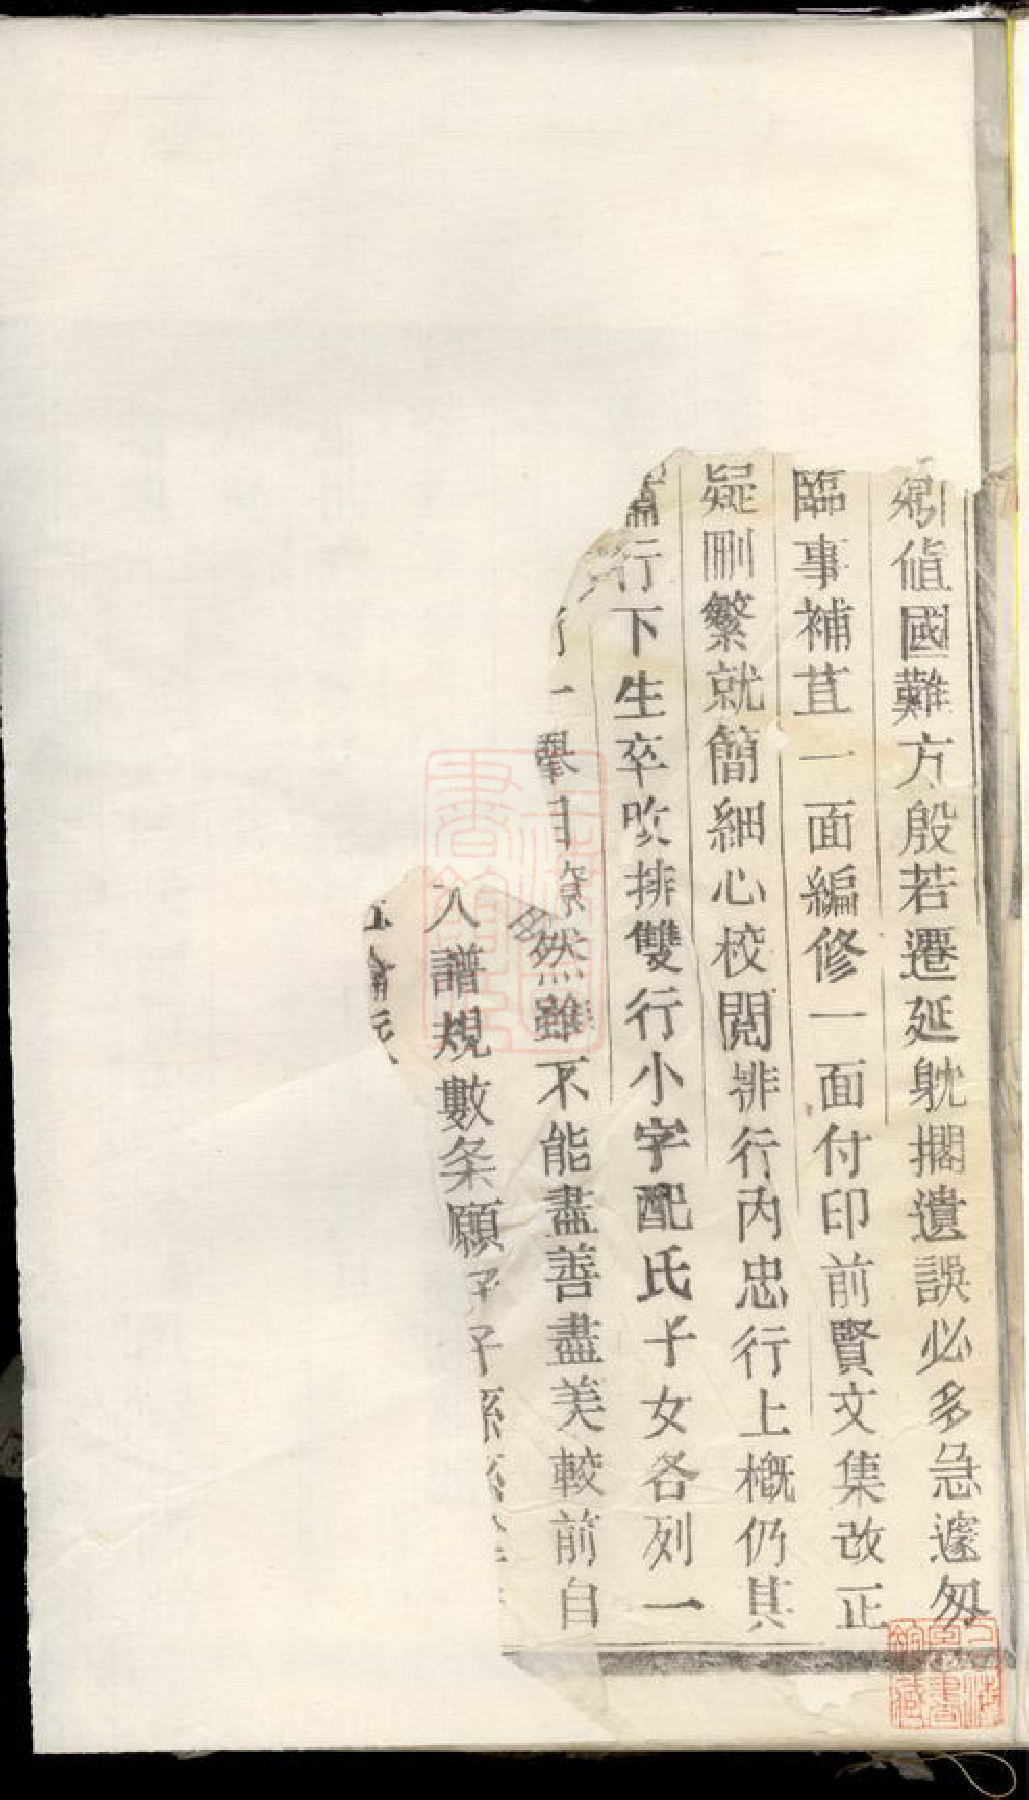 值國難方殷若遷延躭擱遺誤必多急遽匆
臨事補苴一面編修一面付印前賢文集改正
疑刪繁就簡細心校閱排行內忠行上概仍其
行下生卒吹排雙行小字配氏子女各列一
一舉目寮然雖不能盡善盡美較前自
入譜規數条願 子孫